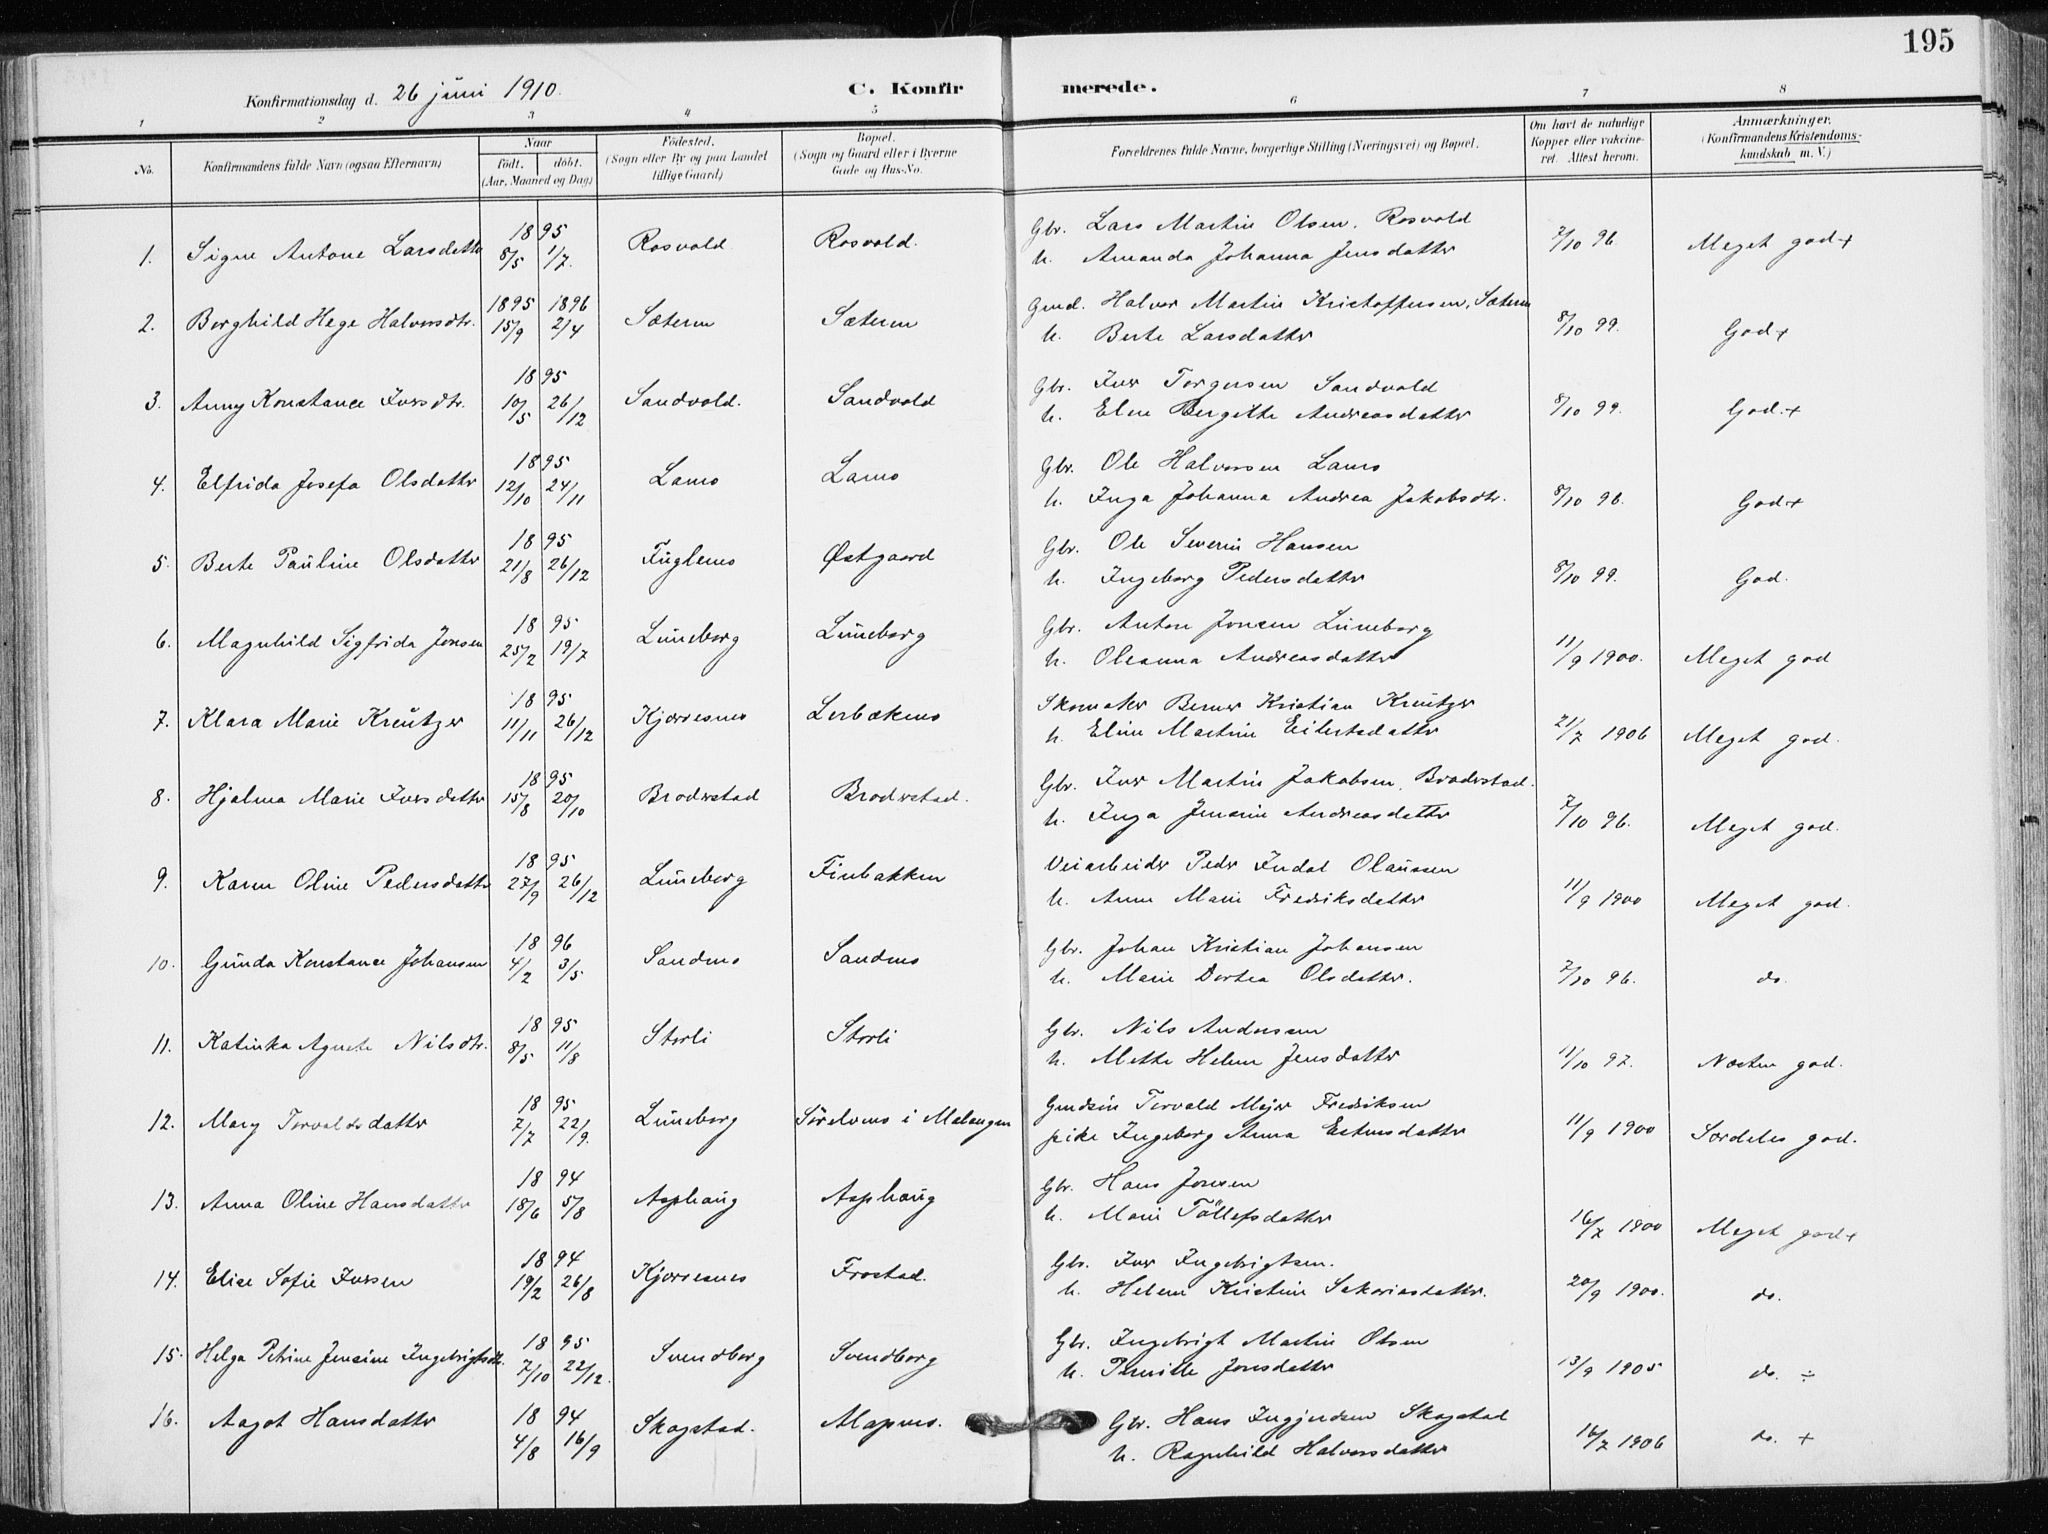 195
Konfirmationsdag d. 26 juni 1910.
C. Konfirmerede.
1 2 3 4 5 6 7 8
No.
Konfirmandens fulde Navn (ogsaa Efternavn)
Naar
født. døbt.
(Aar, Maaned og Dag)
Fødested.
(Sogn eller By og paa Landet
tillige Gaard)
Bopæl.
(Sogn og Gaard eller i Byerne
Gade og Hus-No.
Forældrenes fulde Navne, borgerlige Stilling (Næringsvei) og Bopæl.
Om havt de naturlige
Kopper eller vakcine-
ret. Attest herom.
Anmærkninger.
(Konfirmandens Kristendoms-
kundskab m. V.)
1. Signe Antone Larsdatter 1895 8/5 1/7. Rosvold Rosvold. Gbr. Lars Martin Olsen, Rosvold
h. Amanda Johanna Jensdatter 7/10 96. Meget god+
2. Borghild Hege Halvorsdtr. 1895 15/9 1896 2/4 Sæteren Sæteren Gmd. Halvor Martin Kristoffersen, Sæteren
h. Berte Larsdatter 8/10 99. God+
3. Anny Konstance Iversdtr. 1895 10/5 26/12 Sandvold. Sandvold Gbr. Iver Torgersen Sandvold
h. Elen Bergitte Andreasdatter 8/10 99. God.+
4. Elfrida Josefa Olsdatter 1895 12/10 24/11 Lanes Lanes Gbr. Ole Halvorsen Lanes
h. Inga Johanna Andrea Jakobsdtr. 8/10 96. God+
5. Berte Pauline Olsdatter 1895 21/8 26/12 Fuglenes Østgaard Gbr. Ole Severin Hansen
h. Ingeborg Pedersdatter 8/10 99. God.
6. Magnhild Sigfrida Jonsen 1895 25/2 19/7 Luneborg Luneborg Gbr. Anton Jonsen Luneborg
h. Oleanna Andreasdatter 11/9 1900. Meget god
7. Klara Marie Kreutzer 1895 11/11 26/12 Kjerresnes Lerbakens Skomaker Berner Kristian Kreutzer
h. Eline Martine Eilertsdatter 21/7 1906 Meget god.
8. Hjalma Marie Iversdatter 1895 15/8 20/10 Broderstad Broderstad. Gbr. Iver Martin Jakobsen, Broderstad.
h. Inga Jensine Andreasdatter 7/10 96. Meget god.
9. Karen Oline Pedersdatter 1895 27/9 26/12 Luneborg Finbakken Veiarbeider Peder Indal Olaussen
h. Anne Marie Fredriksdatter 11/9 1900 Meget god.
10. Gunda Konstance Johansen 1896 4/2 3/5 Sandnes Sandnes Gbr. Johan Kristian Johansen
h. Marie Dortea Olsdatter. 7/10 96. do.
11. Katinka Agnete Nilsdtr. 1895 8/5 11/8 Storli Storli Gbr. Nils Andersen
h. Mette Helene Jensdatter 11/10 97. Næsten god.
12. Mary Torvaldsdatter 1895 7/7 22/9. Luneborg Sørelvnes i Malangen Gmdsøn Torvald Mejer Fredriksen
pike Ingeborg Anna Estensdatter 11/9 1900 Særdeles god.
13. Anna Oline Hansdatter 1894 18/6 5/8 Asphaug Asphaug Gbr. Hans Jonsen
h. Marie Töllefsdatter 16/7 1900 Meget god+
14. Elise Sofie Iversen 1894 19/2 26/8 Kjerresnes Frostad. Gbr. Iver Ingebrigtsen.
h. Helene Kristine Sakariasdatter. 20/9 1900. do.
15. Helga Petrine Jensine Ingebrigtsdtr. 1895 7/10 22/12. Svendborg Svendborg Gbr. Ingebrigt Martin Olsen
h. Pernille Jonsdatter 13/9 1905 do. ÷
16. Aagot Hansdatter 1894 4/8 16/9 Skogstad. Mapnes. Gbr. Hans Ingjerdsen Skogstad
h. Ragnhild Halvorsdatter 16/7 1906 do. +